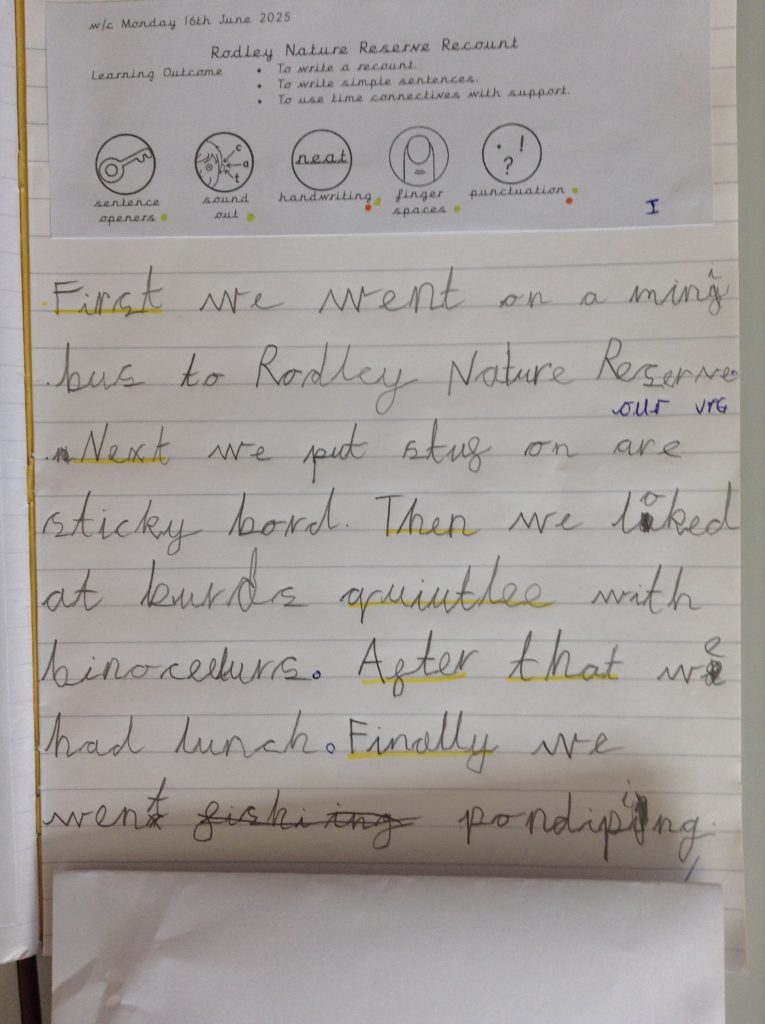 w/c Monday 16th June 2025
Rodley Nature Reserve Recount
Learning Outcome
• To write a recount.
• To write simple sentences.
• To use time connectives with support.
c
a
t
neat
. ! ?
sentence openers
sound out
handwriting
finger spaces
punctuation
I
First we went on a mini
bus to Rodley Nature Reserve.
our VFG
Next we put stuf on are
sticky bord. Then we loked
at burds quiutlee with
binoceeurs. After that we
had lunch. Finally we
went fishiing pondiping.